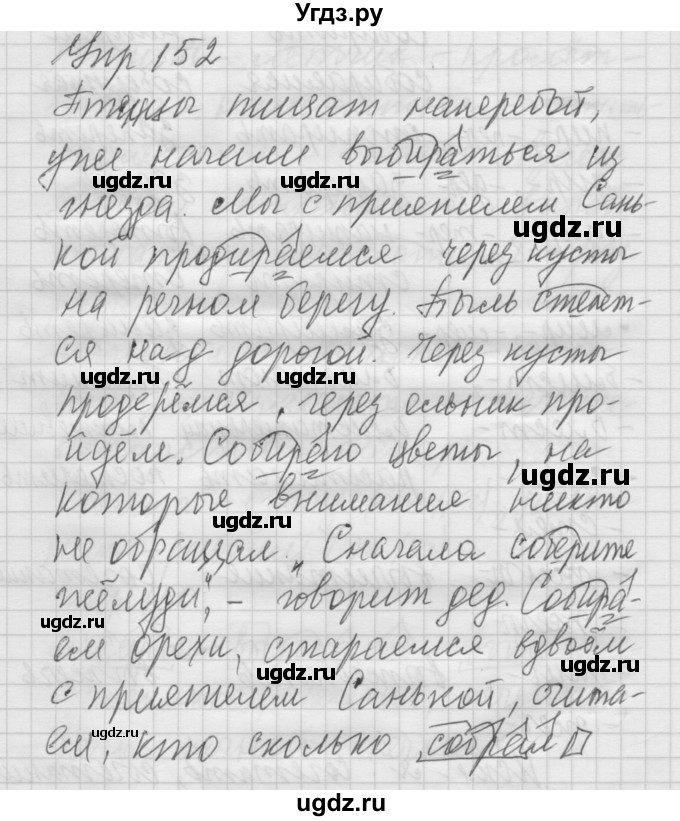 Угдз.ру
Упр 152
Птенцы пищат наперебой,
уже начали выбираться из
ugdz.ru ugdz.ru
гнезда. Мы с приятелем Сань-
ugdz.ru
кой продираемся через кусты
на речном берегу. Пыль стелет-
ся над дорогой. Через кусты
ugdz.ru ugdz.ru
продерёмся, через ельник про-
йдём. Собираю цветы, на
которые внимания никто
ugdz.ru
не обращал. „Сначала соберите
жёлуди", - говорит дед. Собира-
ugdz.ru
ем орехи, стараемся вдвоём
ugdz.ru
с приятелем Санькой, счита-
ем, кто сколько собрал
ugdz.ru
ugdz.ru